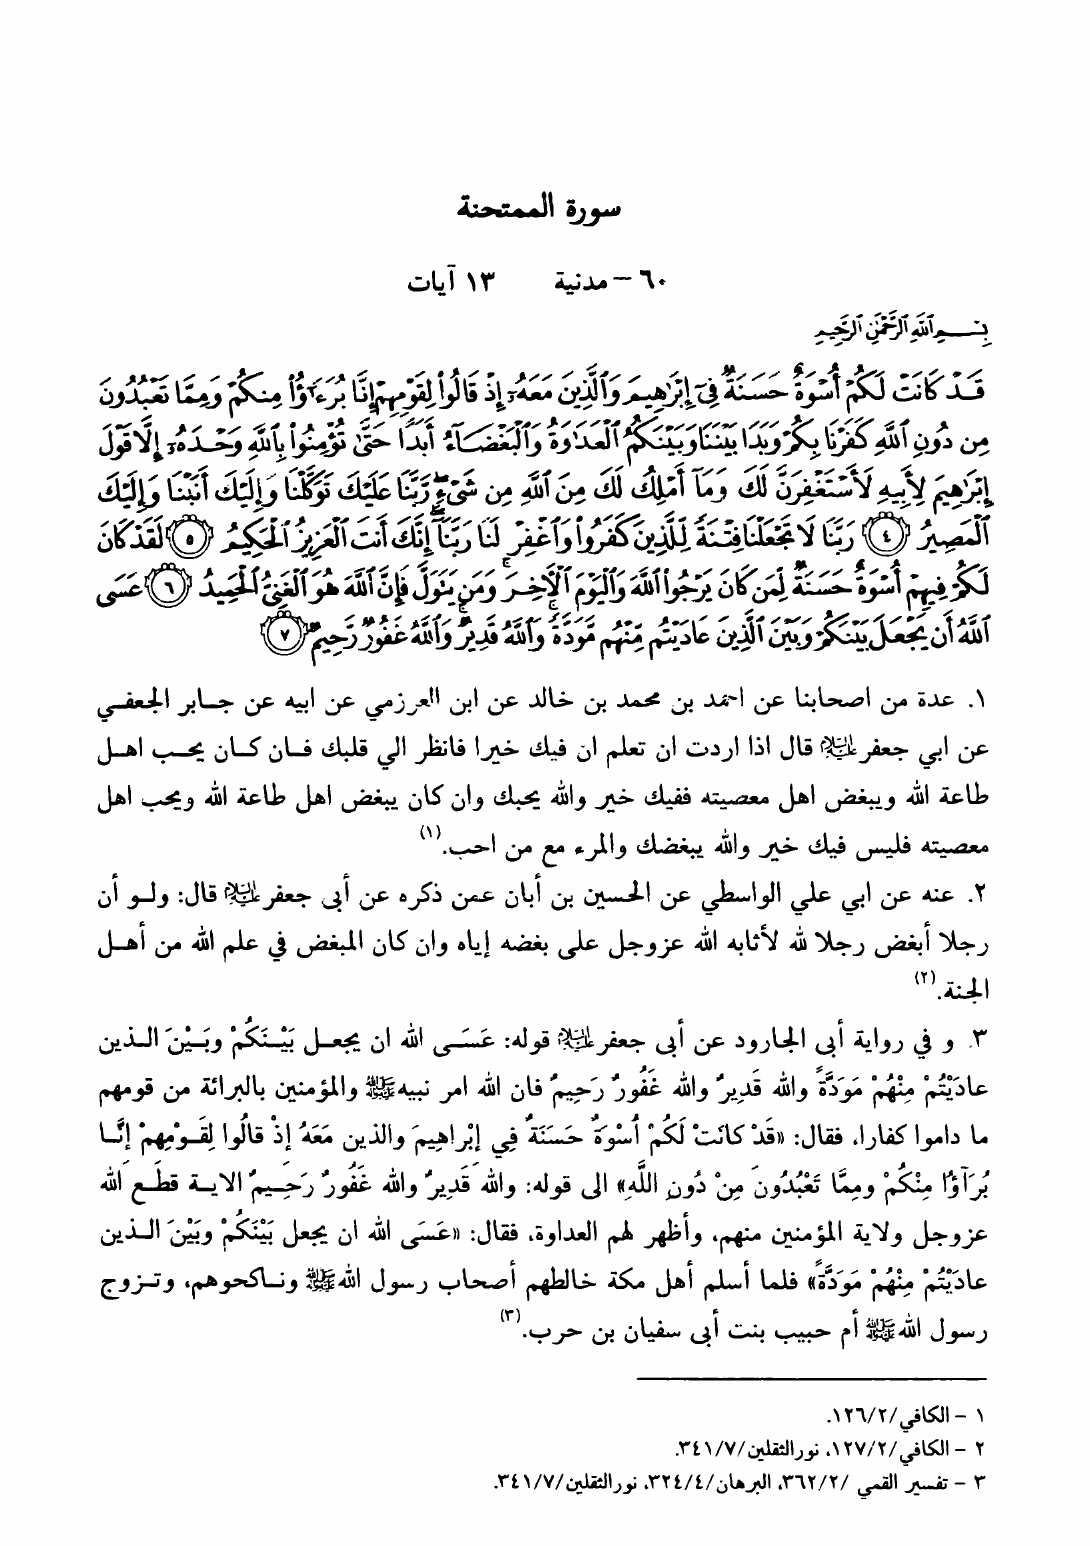 سورة الممتحنة
٦٠ – مدنية ١٣ آيات
بِسْمِ ٱللَّهِ ٱلرَّحْمَٰنِ ٱلرَّحِيمِ
قَدْ كَانَتْ لَكُمْ أُسْوَةٌ حَسَنَةٌ فِىٓ إِبْرَٰهِيمَ وَٱلَّذِينَ مَعَهُۥٓ إِذْ قَالُوا۟ لِقَوْمِهِمْ إِنَّا بُرَءَٰٓؤُا۟ مِنكُمْ وَمِمَّا تَعْبُدُونَ
مِن دُونِ ٱللَّهِ كَفَرْنَا بِكُمْ وَبَدَا بَيْنَنَا وَبَيْنَكُمُ ٱلْعَدَٰوَةُ وَٱلْبَغْضَآءُ أَبَدًا حَتَّىٰ تُؤْمِنُوا۟ بِٱللَّهِ وَحْدَهُۥٓ إِلَّا قَوْلَ
إِبْرَٰهِيمَ لِأَبِيهِ لَأَسْتَغْفِرَنَّ لَكَ وَمَآ أَمْلِكُ لَكَ مِنَ ٱللَّهِ مِن شَىْءٍ ۖ رَّبَّنَا عَلَيْكَ تَوَكَّلْنَا وَإِلَيْكَ أَنَبْنَا وَإِلَيْكَ
ٱلْمَصِيرُ ﴿٤﴾ رَبَّنَا لَا تَجْعَلْنَا فِتْنَةً لِّلَّذِينَ كَفَرُوا۟ وَٱغْفِرْ لَنَا رَبَّنَآ ۖ إِنَّكَ أَنتَ ٱلْعَزِيزُ ٱلْحَكِيمُ ﴿٥﴾ لَقَدْ كَانَ
لَكُمْ فِيهِمْ أُسْوَةٌ حَسَنَةٌ لِّمَن كَانَ يَرْجُوا۟ ٱللَّهَ وَٱلْيَوْمَ ٱلْءَاخِرَ ۚ وَمَن يَتَوَلَّ فَإِنَّ ٱللَّهَ هُوَ ٱلْغَنِىُّ ٱلْحَمِيدُ ﴿٦﴾ عَسَى
ٱللَّهُ أَن يَجْعَلَ بَيْنَكُمْ وَبَيْنَ ٱلَّذِينَ عَادَيْتُم مِّنْهُم مَّوَدَّةً ۚ وَٱللَّهُ قَدِيرٌ ۚ وَٱللَّهُ غَفُورٌ رَّحِيمٌ ﴿٧﴾
١. عدة من اصحابنا عن احمد بن محمد بن خالد عن ابن العرزمي عن ابيه عن جابر الجعفي
عن ابي جعفر عليه السلام قال اذا اردت ان تعلم ان فيك خيرا فانظر الي قلبك فان كان يحب اهل
طاعة الله ويبغض اهل معصيته ففيك خير والله يحبك وان كان يبغض اهل طاعة الله ويحب اهل
معصيته فليس فيك خير والله يبغضك والمرء مع من احب.(١)
٢. عنه عن ابي علي الواسطي عن الحسين بن أبان عمن ذكره عن أبى جعفر عليه السلام قال: ولو أن
رجلا أبغض رجلا لله لأثابه الله عزوجل على بغضه إياه وان كان المبغض في علم الله من أهل
الجنة.(٢)
٣. و في رواية أبى الجارود عن أبى جعفر عليه السلام قوله: عَسَى الله ان يجعل بَيْنَكُمْ وبَيْنَ الذين
عادَيْتُمْ مِنْهُمْ مَوَدَّةً والله قَدِيرٌ والله غَفُورٌ رَحِيمٌ فان الله امر نبيه ﷺ والمؤمنين بالبرائة من قومهم
ما داموا كفارا، فقال: «قَدْ كانَتْ لَكُمْ أُسْوَةٌ حَسَنَةٌ فِي إِبْراهِيمَ والذين مَعَهُ إِذْ قالُوا لِقَوْمِهِمْ إِنَّا
بُرَآؤُا مِنْكُمْ ومِمَّا تَعْبُدُونَ مِنْ دُونِ اللَّهِ» الى قوله: والله قَدِيرٌ والله غَفُورٌ رَحِيمٌ الاية قطع الله
عزوجل ولاية المؤمنين منهم، وأظهر لهم العداوة، فقال: «عَسَى الله ان يجعل بَيْنَكُمْ وبَيْنَ الذين
عادَيْتُمْ مِنْهُمْ مَوَدَّةً» فلما أسلم أهل مكة خالطهم أصحاب رسول الله ﷺ وناكحوهم، وتزوج
رسول الله ﷺ أم حبيب بنت أبى سفيان بن حرب.(٣)
١ – الكافي/١٢٦/٢.
٢ – الكافي/١٢٧/٢، نورالثقلين/٣٤١/٧.
٣ – تفسير القمي /٣٦٢/٢، البرهان/٣٢٤/٤، نورالثقلين/٣٤١/٧.